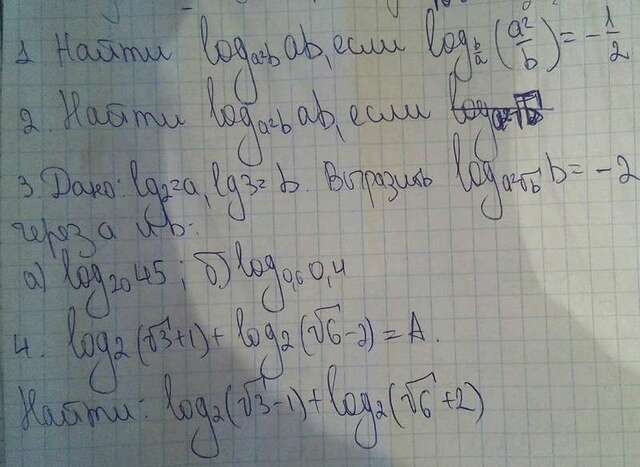 1 Найти log_{a²b} ab, если log_{b/a} (a²/b) = -1/2
2. Найти log_{a²b} ab, если
3 Дано: lg2=a, lg3=b. Выразить log_{a²√b} b = -2
через a и b:
а) log₂₀45; б) log_{0,6} 0,4
4. log₂(√3+1)+log₂(√6-2)=A.
Найти: log₂(√3-1)+log₂(√6+2)